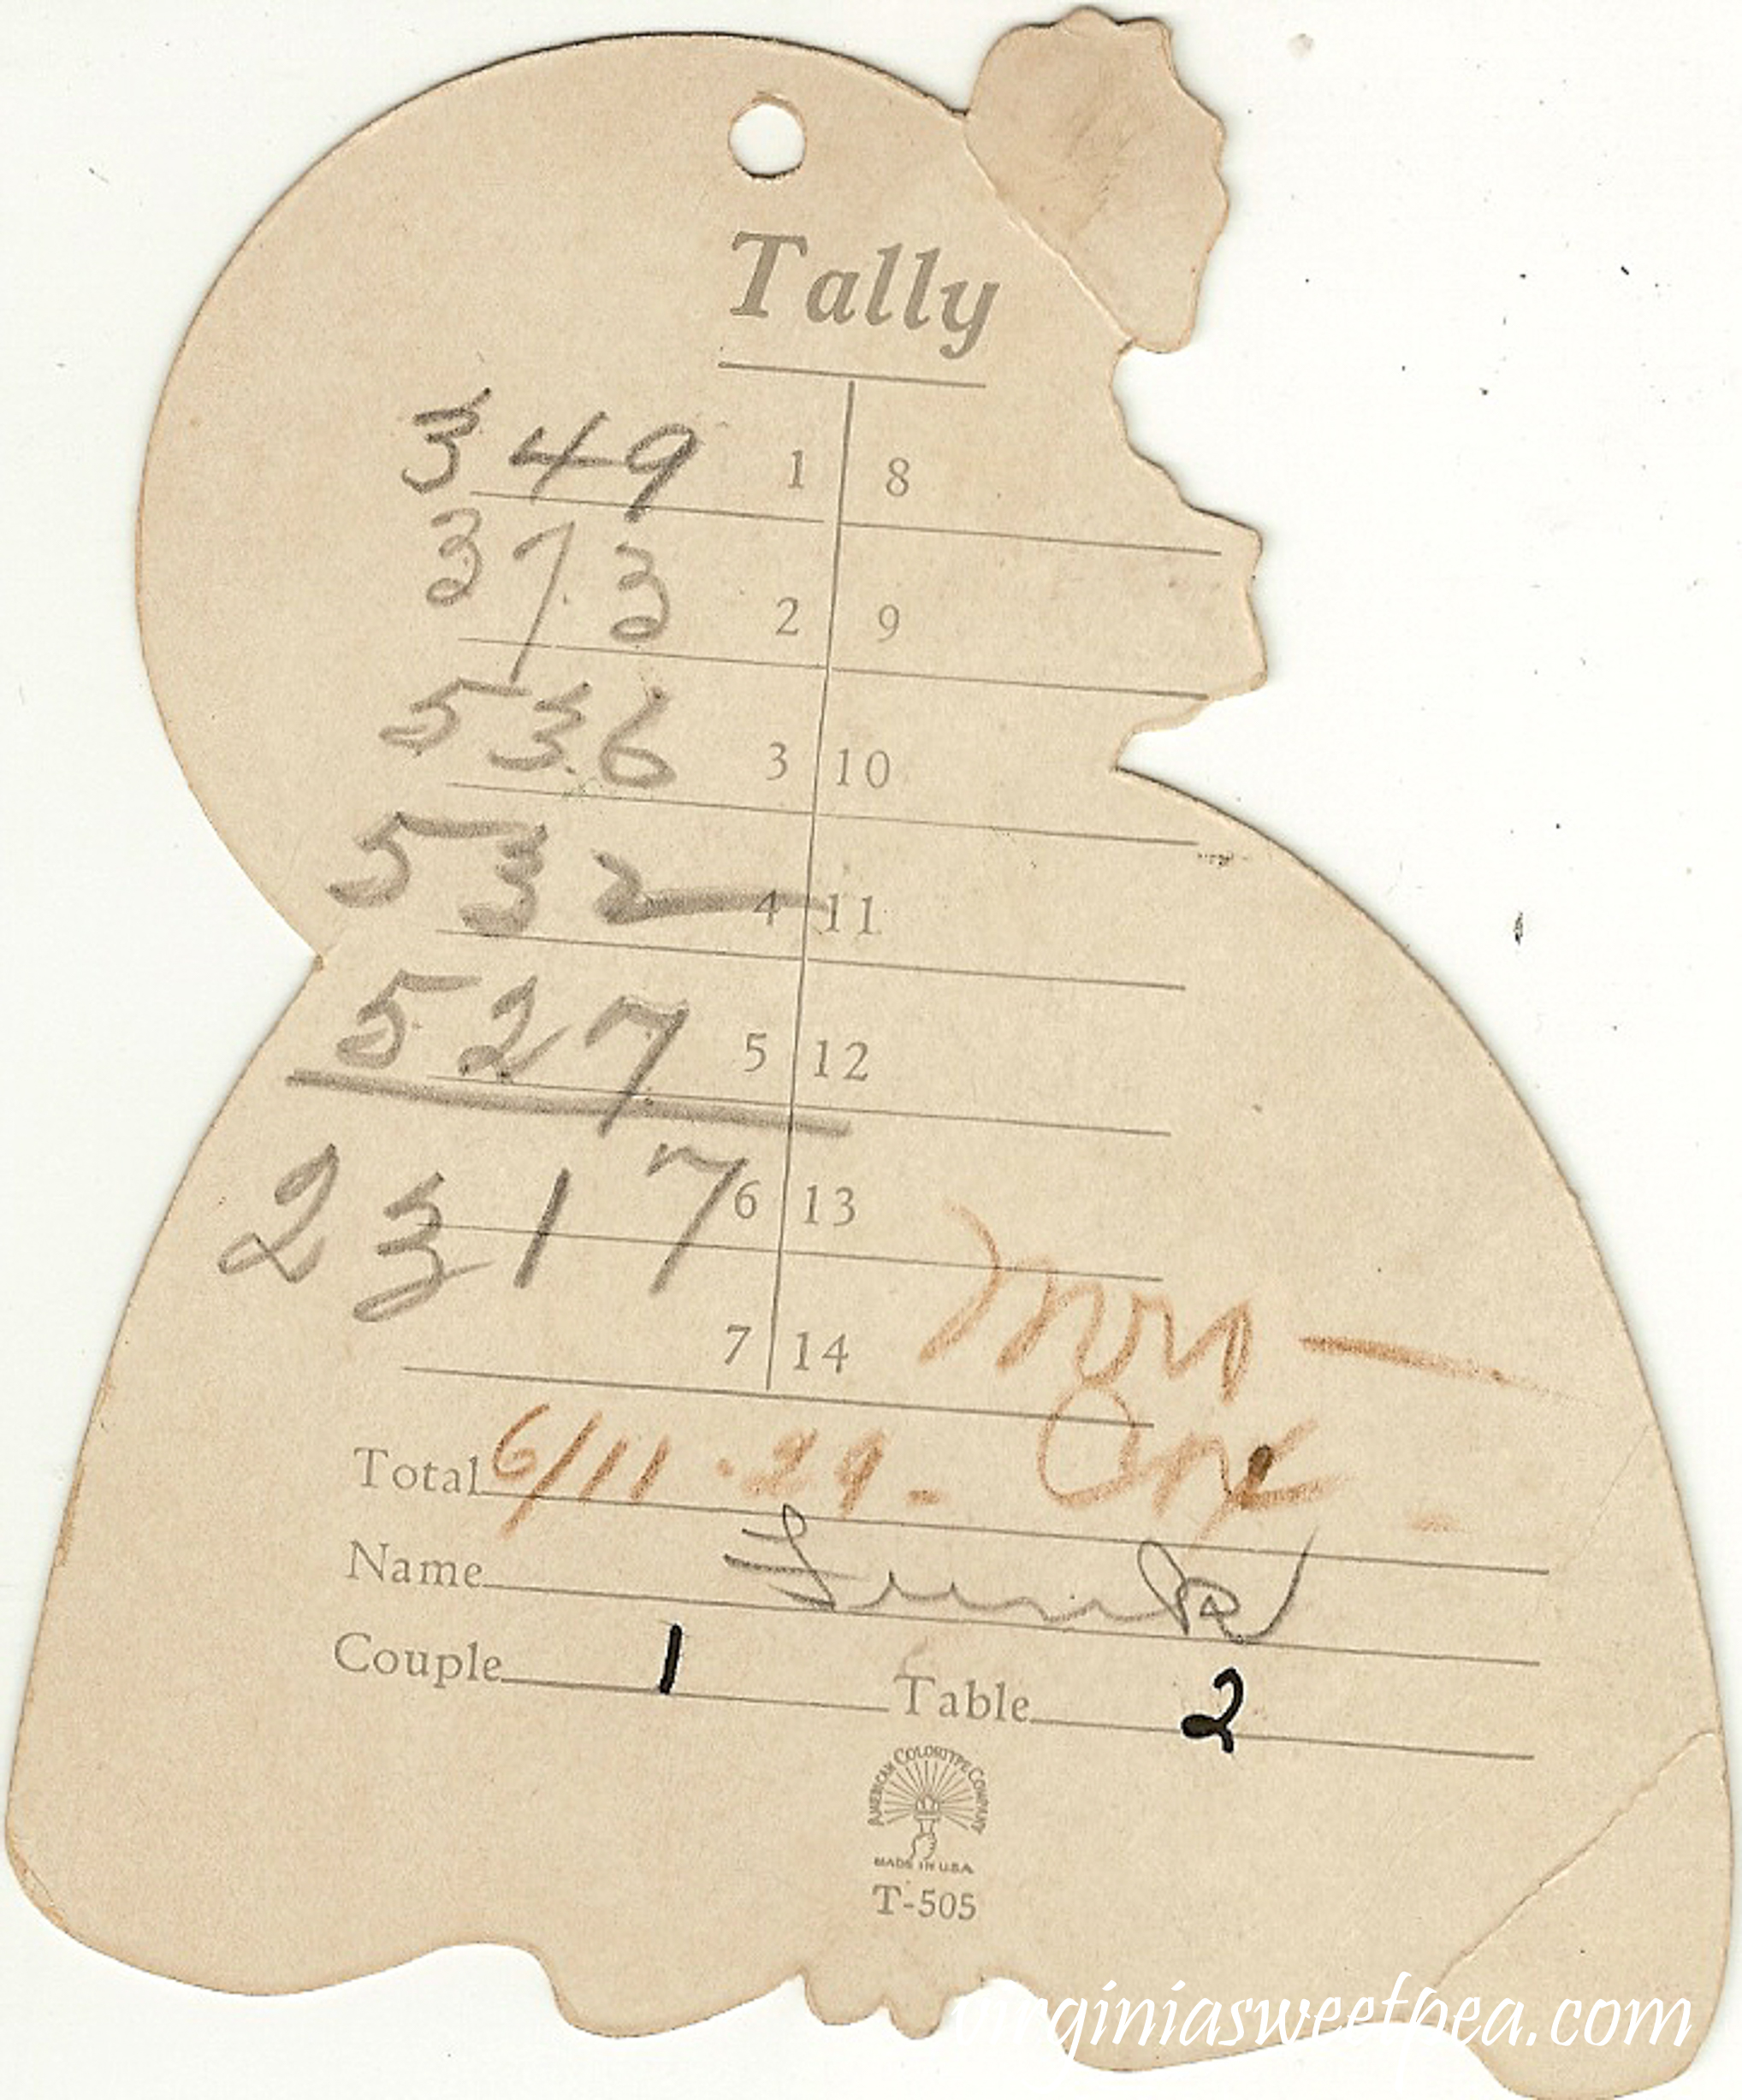 Tally
349 1 8
373 2 9
536 3 10
532 4 11
527 5 12
2317 6 13
7 14
Mrs —
Total 6/11·29-
Name
Couple 1 Table 2
AMERICAN COLORTYPE COMPANY
MADE IN U.S.A.
T-505
virginiasweetpea.com